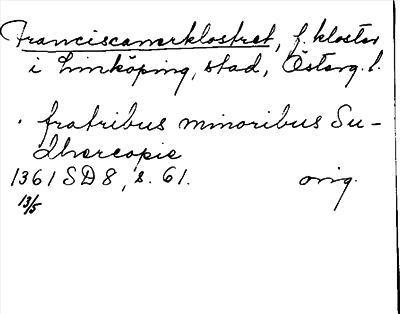 Franciscanerklostret, f. kloster
i Linköping, stad, Österg. l.
fratribus minoribus Su-
dhercopie
1361 SD 8, s. 61. orig.
13/5